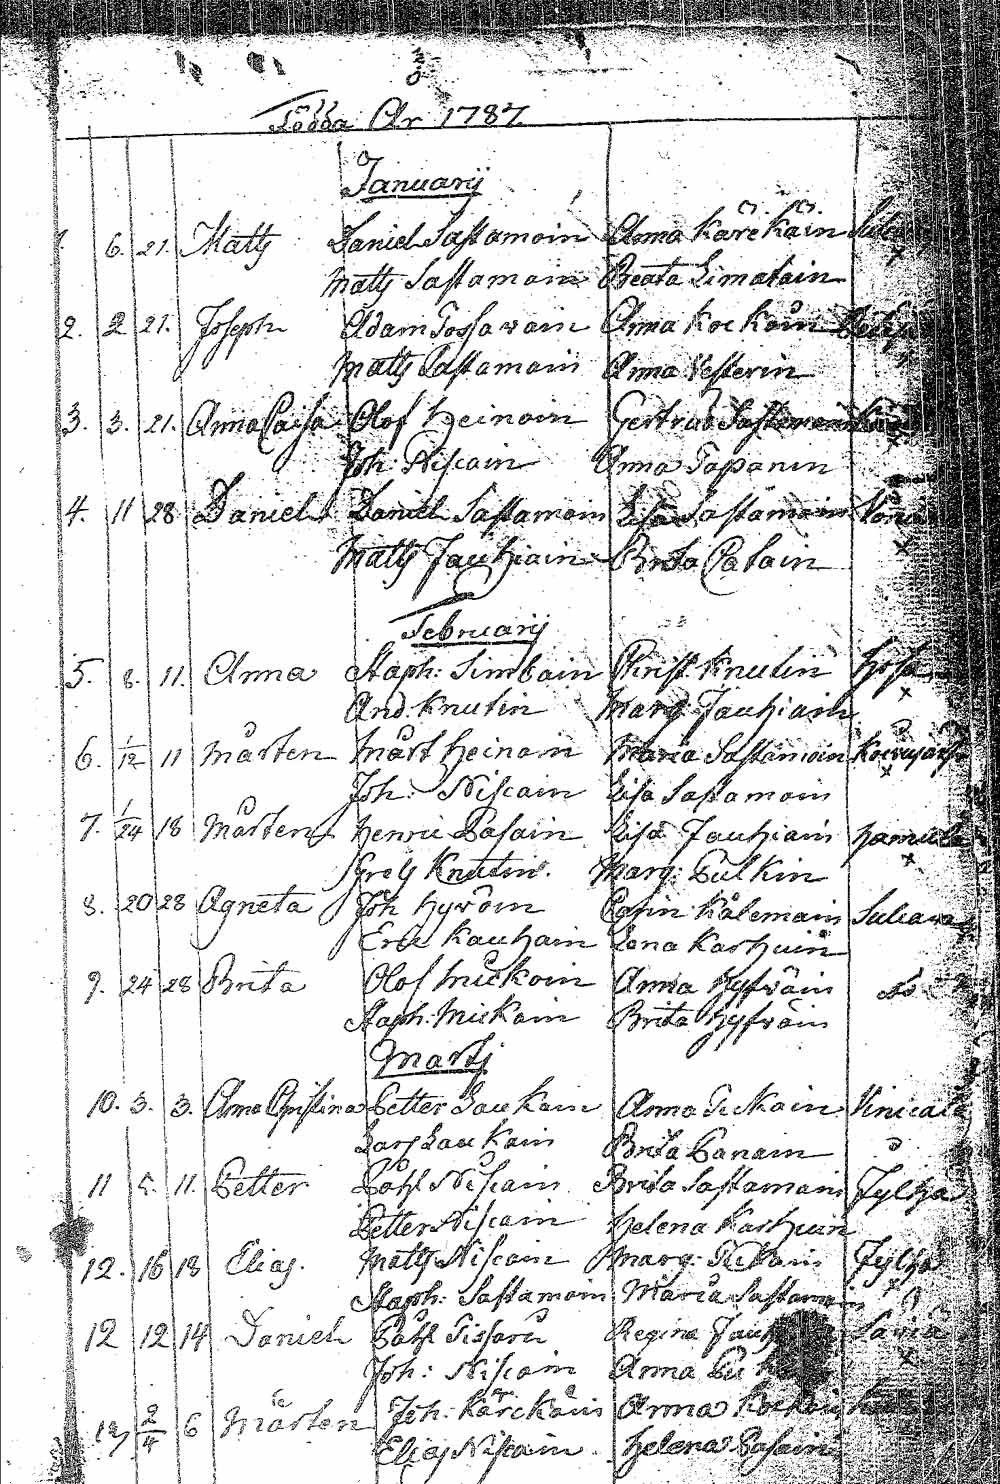 Födda År 1787
Januarij
1. 6. 21. Matts Daniel Sastamoin Anna Kärckäin
Matts Sastamoin Beata Limatain
2. 2 21. Joseph Adam Tossawain Anna Kockoin
Matts Sastamoin Anna Vesterin
3. 3. 21. Anna Caisa Olof Heinoin Gertrud Sastamoin
Joh: Niscain Anna Tapanin
4. 11 28 Daniel Daniel Sastamoin Lisa Sastamoin
Matts Jauhiain Brita Palain
Februarij
5. 8. 11. Anna Staph: Simbain Christ. Knutin
And. Knutin Marg. Jauhiain
6. 1/12 11 Mårten Mårt Heinoin Maria Sastamoin Koivujärfvi
Joh: Niscain Lisa Sastamoin
7. 1/24 18 Mårten Henric Pasain Lisa Jauhiain
Grels Knutin. Marg: Pulkin
8. 20 28 Agneta Joh Hyvöin Carin Kålemain Sulcava
Eric Kauhain Lena Karhuin
9. 24 28 Brita Olof Mickoin Anna Hyfväin do
Staph: Mickoin Brita Hyfväin
Martj
10. 3. 3. Anna Christina Petter Laukain Anna Tickain Vinicala
Lars Laukain Brita Panain
11 5. 11. Petter Påhl Niscain Brita Sastamoin Jylhä
Petter Niscain Helena Karhuin
12. 16 18 Elias. Matts Niscain Marg: Tickain Jylhä
Staph: Sastamoin Maria Sastamoin
12 12 14 Daniel Påhl Tissari Regina
Joh: Niscain Anna
13 2/4 6 Mårten Joh: Kärckäin Anna Kockoin
Elias Niscain Helena Pasain